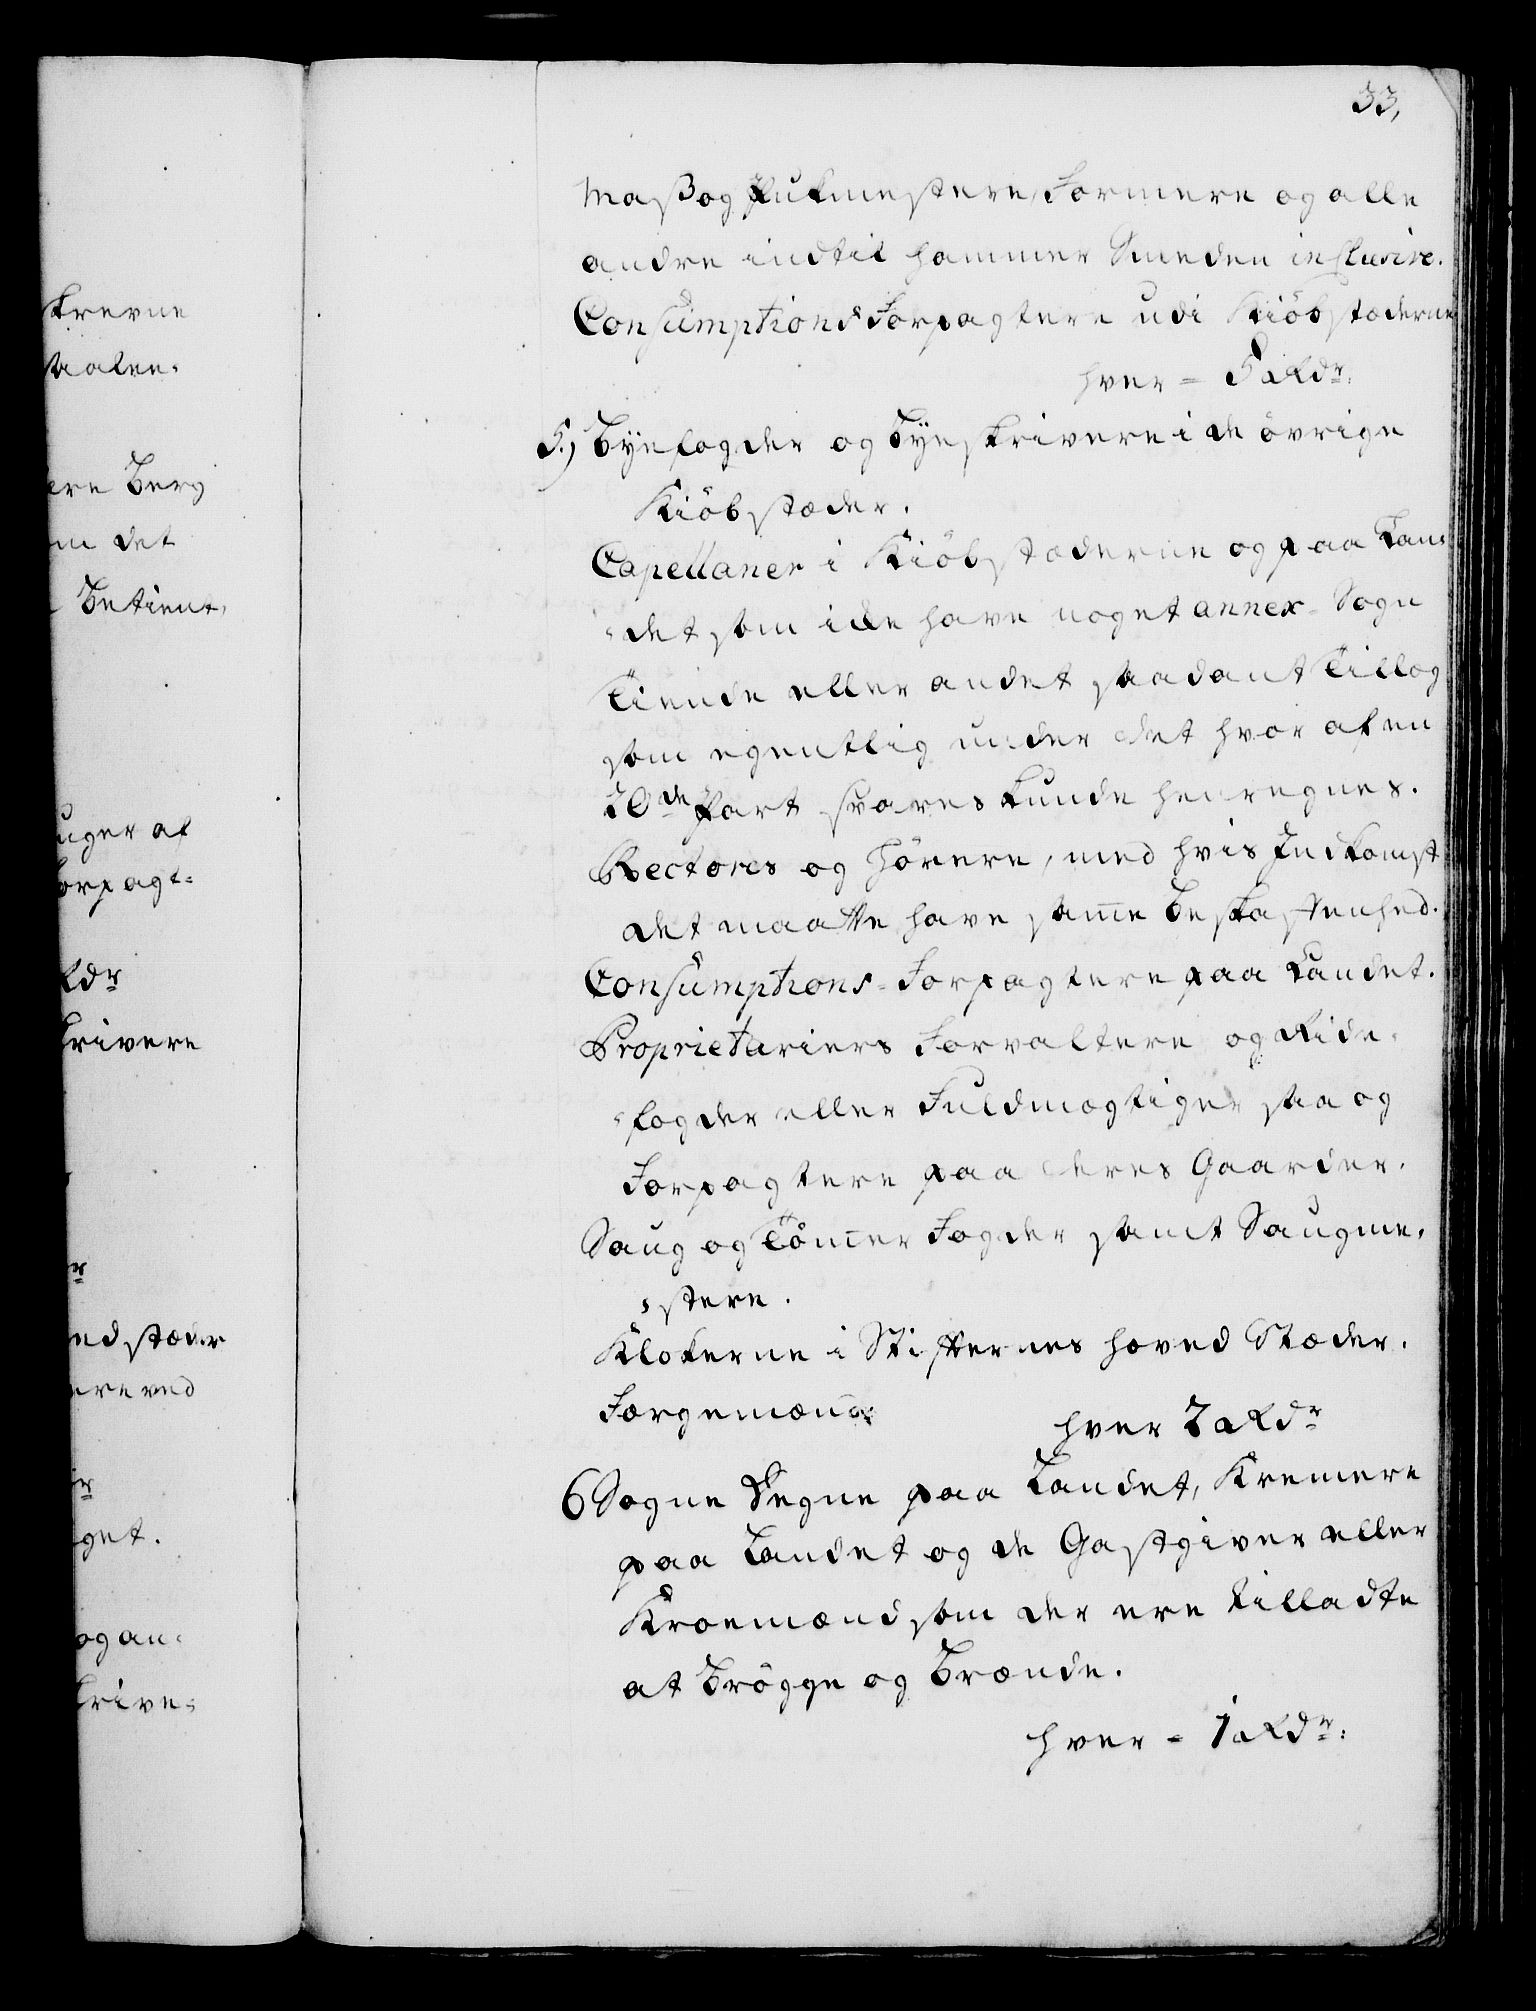 33,
Mass og Pukmestere, Formere og alle
andre indtil Hammer Smeden inclusive.
Consumptions Forpagtere udi Kiöbstæderne
hver = 5 Rdr:
5.) Byefogder og Byeskrivere i de övrige
Kiöbstæder.
Capellaner i Kiöbstæderne og paa Lan=
=det som icke have noget annex-Sogn
Tiende eller andet saadant Tillæg
som egentlig under det hvor af en
20de Part svares kunde henregnes.
Rectores og Hörere, med hvis Indkomst
det maatte have samme Beskaffenhed.
Consumptions-Forpagtere paa Landet.
Proprietariers Forvaltere og Ride=
=fogder eller Fuldmægtiger saa og
Forpagtere paa deres Gaarder.
Saug og Tömmer Fogder samt Saugme=
=stere.
Klokerne i Stifternes Hoved Stæder.
Færgemænd
hver 2 Rdr
6 Sogne Degne paa Landet, Kremere
paa Landet og de Gastgiver eller
Kroemænd som der ere tilladte
at Brögge og Brænde.
hver = 1 Rdr:
skrevne
ere Berg
om det
Betient,
uger af
Forpagt=
Rdr
skrivere
r
ed stæder
ere ved
r
get.
og an=
skrive=